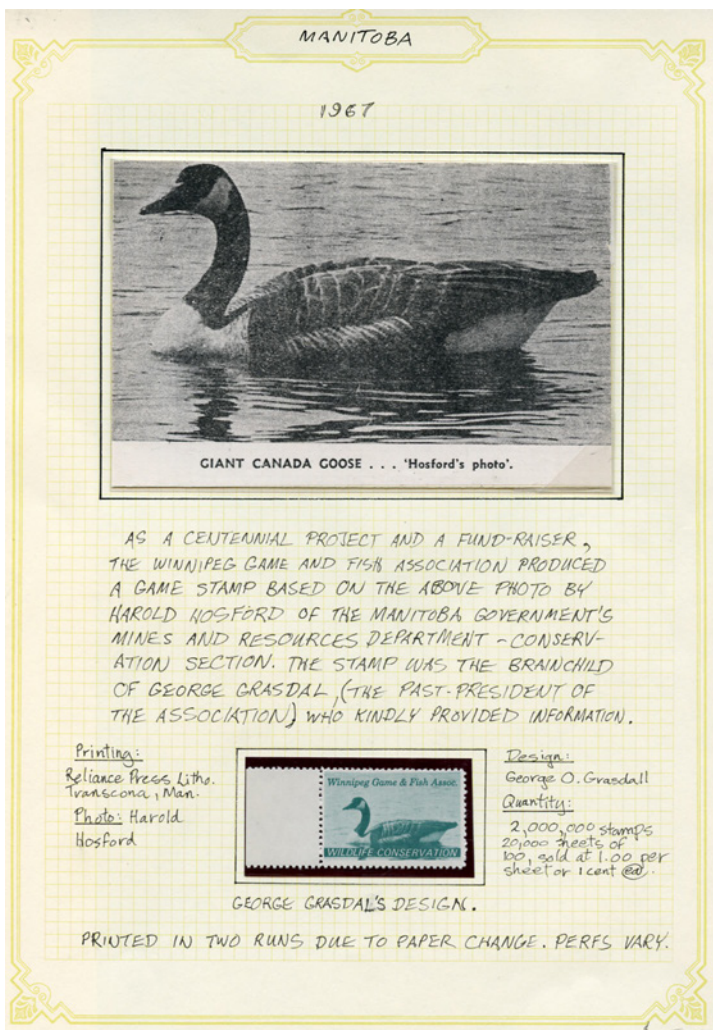 MANITOBA
1967
GIANT CANADA GOOSE . . . 'Hosford's photo'.
AS A CENTENNIAL PROJECT AND A FUND-RAISER,
THE WINNIPEG GAME AND FISH ASSOCIATION PRODUCED
A GAME STAMP BASED ON THE ABOVE PHOTO BY
HAROLD HOSFORD OF THE MANITOBA GOVERNMENT'S
MINES AND RESOURCES DEPARTMENT - CONSERV-
ATION SECTION. THE STAMP WAS THE BRAINCHILD
OF GEORGE GRASDAL, (THE PAST-PRESIDENT OF
THE ASSOCIATION) WHO KINDLY PROVIDED INFORMATION.
Printing:
Reliance Press Litho.
Transcona, Man.
Photo: Harold
Hosford
Winnipeg Game & Fish Assoc.
WILDLIFE CONSERVATION
Design:
George O. Grasdall
Quantity:
2,000,000 stamps
20,000 sheets of
100, sold at 1.00 per
sheet or 1 cent ea.
GEORGE GRASDAL'S DESIGN.
PRINTED IN TWO RUNS DUE TO PAPER CHANGE. PERFS VARY.